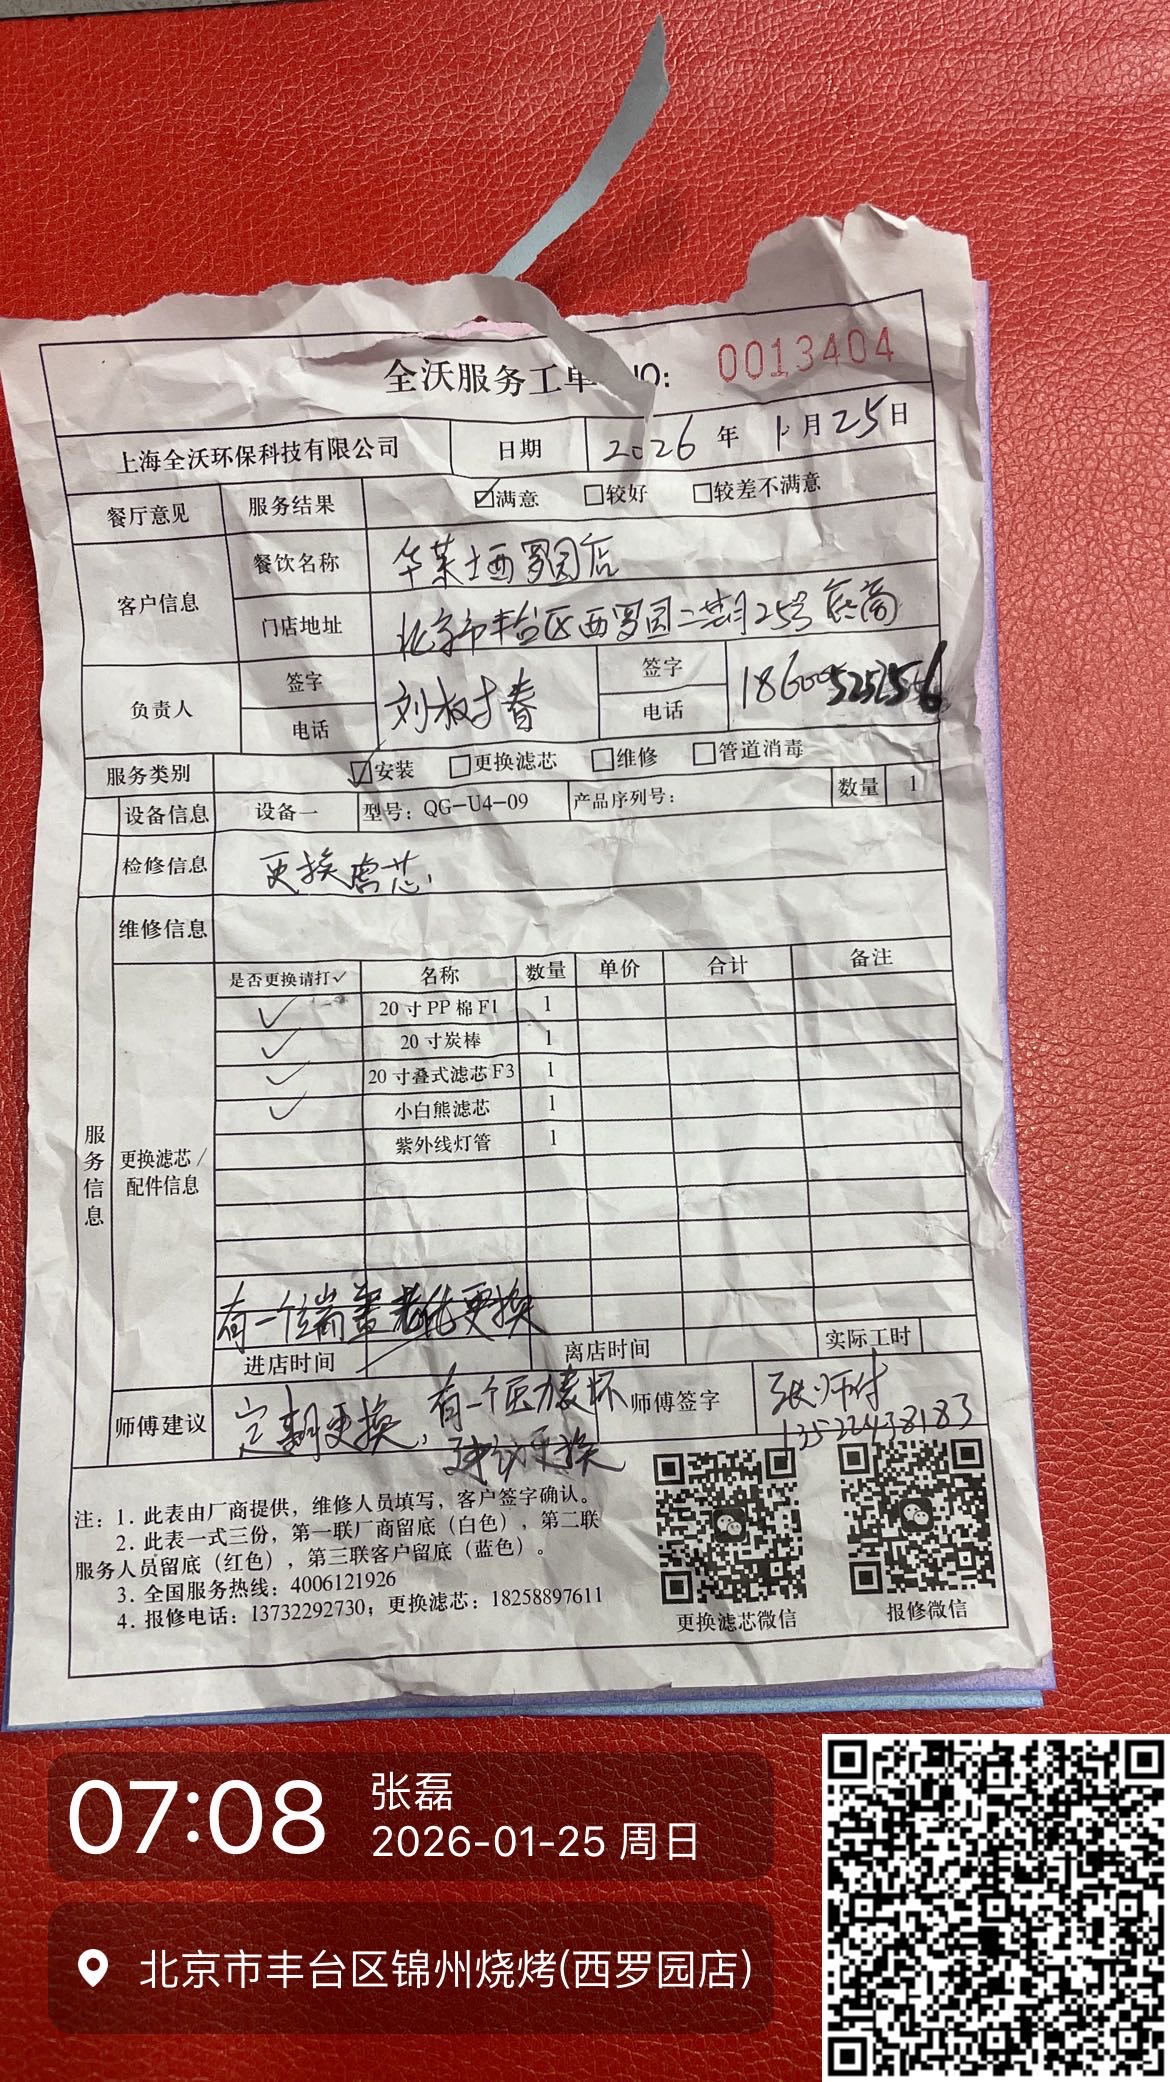 全沃服务工单 NO: 0013404
上海全沃环保科技有限公司 日期 2026 年 1 月 25 日
餐厅意见 服务结果 ☑满意 □较好 □较差不满意
客户信息 餐饮名称 华莱士西罗园店
门店地址 北京市丰台区西罗园二期25号底商
负责人 签字 电话 刘 春 签字 电话
服务类别 ☑安装 □更换滤芯 □维修 □管道消毒
设备信息 设备一 型号：QG-U4-09 产品序列号： 数量 1
检修信息 更换虑芯
维修信息
服务信息
更换滤芯/配件信息
是否更换请打✓ 名称 数量 单价 合计 备注
✓ 20寸PP棉F1 1
✓ 20寸炭棒 1
✓ 20寸叠式滤芯F3 1
✓ 小白熊滤芯 1
紫外线灯管 1
有一个端盖老化更换
进店时间 离店时间 实际工时
师傅建议 定期更换，有一个压力表坏 师傅签字 张师付
建议更换 13522438183
注：1．此表由厂商提供，维修人员填写，客户签字确认。
2．此表一式三份，第一联厂商留底（白色），第二联
服务人员留底（红色），第三联客户留底（蓝色）。
3．全国服务热线：4006121926
4．报修电话：13732292730；更换滤芯：18258897611
更换滤芯微信 报修微信
07:08 张磊
2026-01-25 周日
北京市丰台区锦州烧烤(西罗园店)